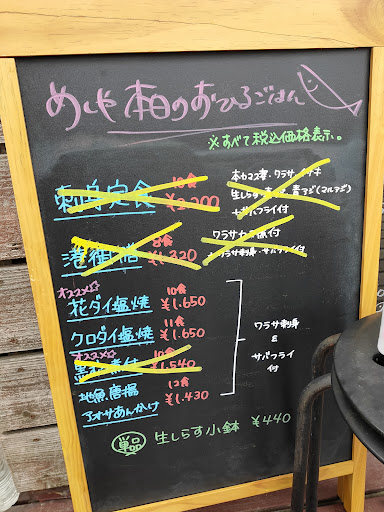 めしや 本日のおひるごはん
※すべて税込価格表示。
刺身定食 10食 ¥2,200
生しらす
青アジ(マルアジ)
フライ付
港御膳 8食 ¥1,320
ワラサ
付
ワラサ刺身・サバフライ付
オススメ☆
花ダイ塩焼 10食 ¥1.650
クロダイ塩焼 11食 ¥1.650
オススメ☆
煮付 10食 ¥1,540
地魚唐揚 12食 ¥1.430
アオサあんかけ
ワラサ刺身
&
サバフライ
付
単品 生しらす小鉢 ¥440